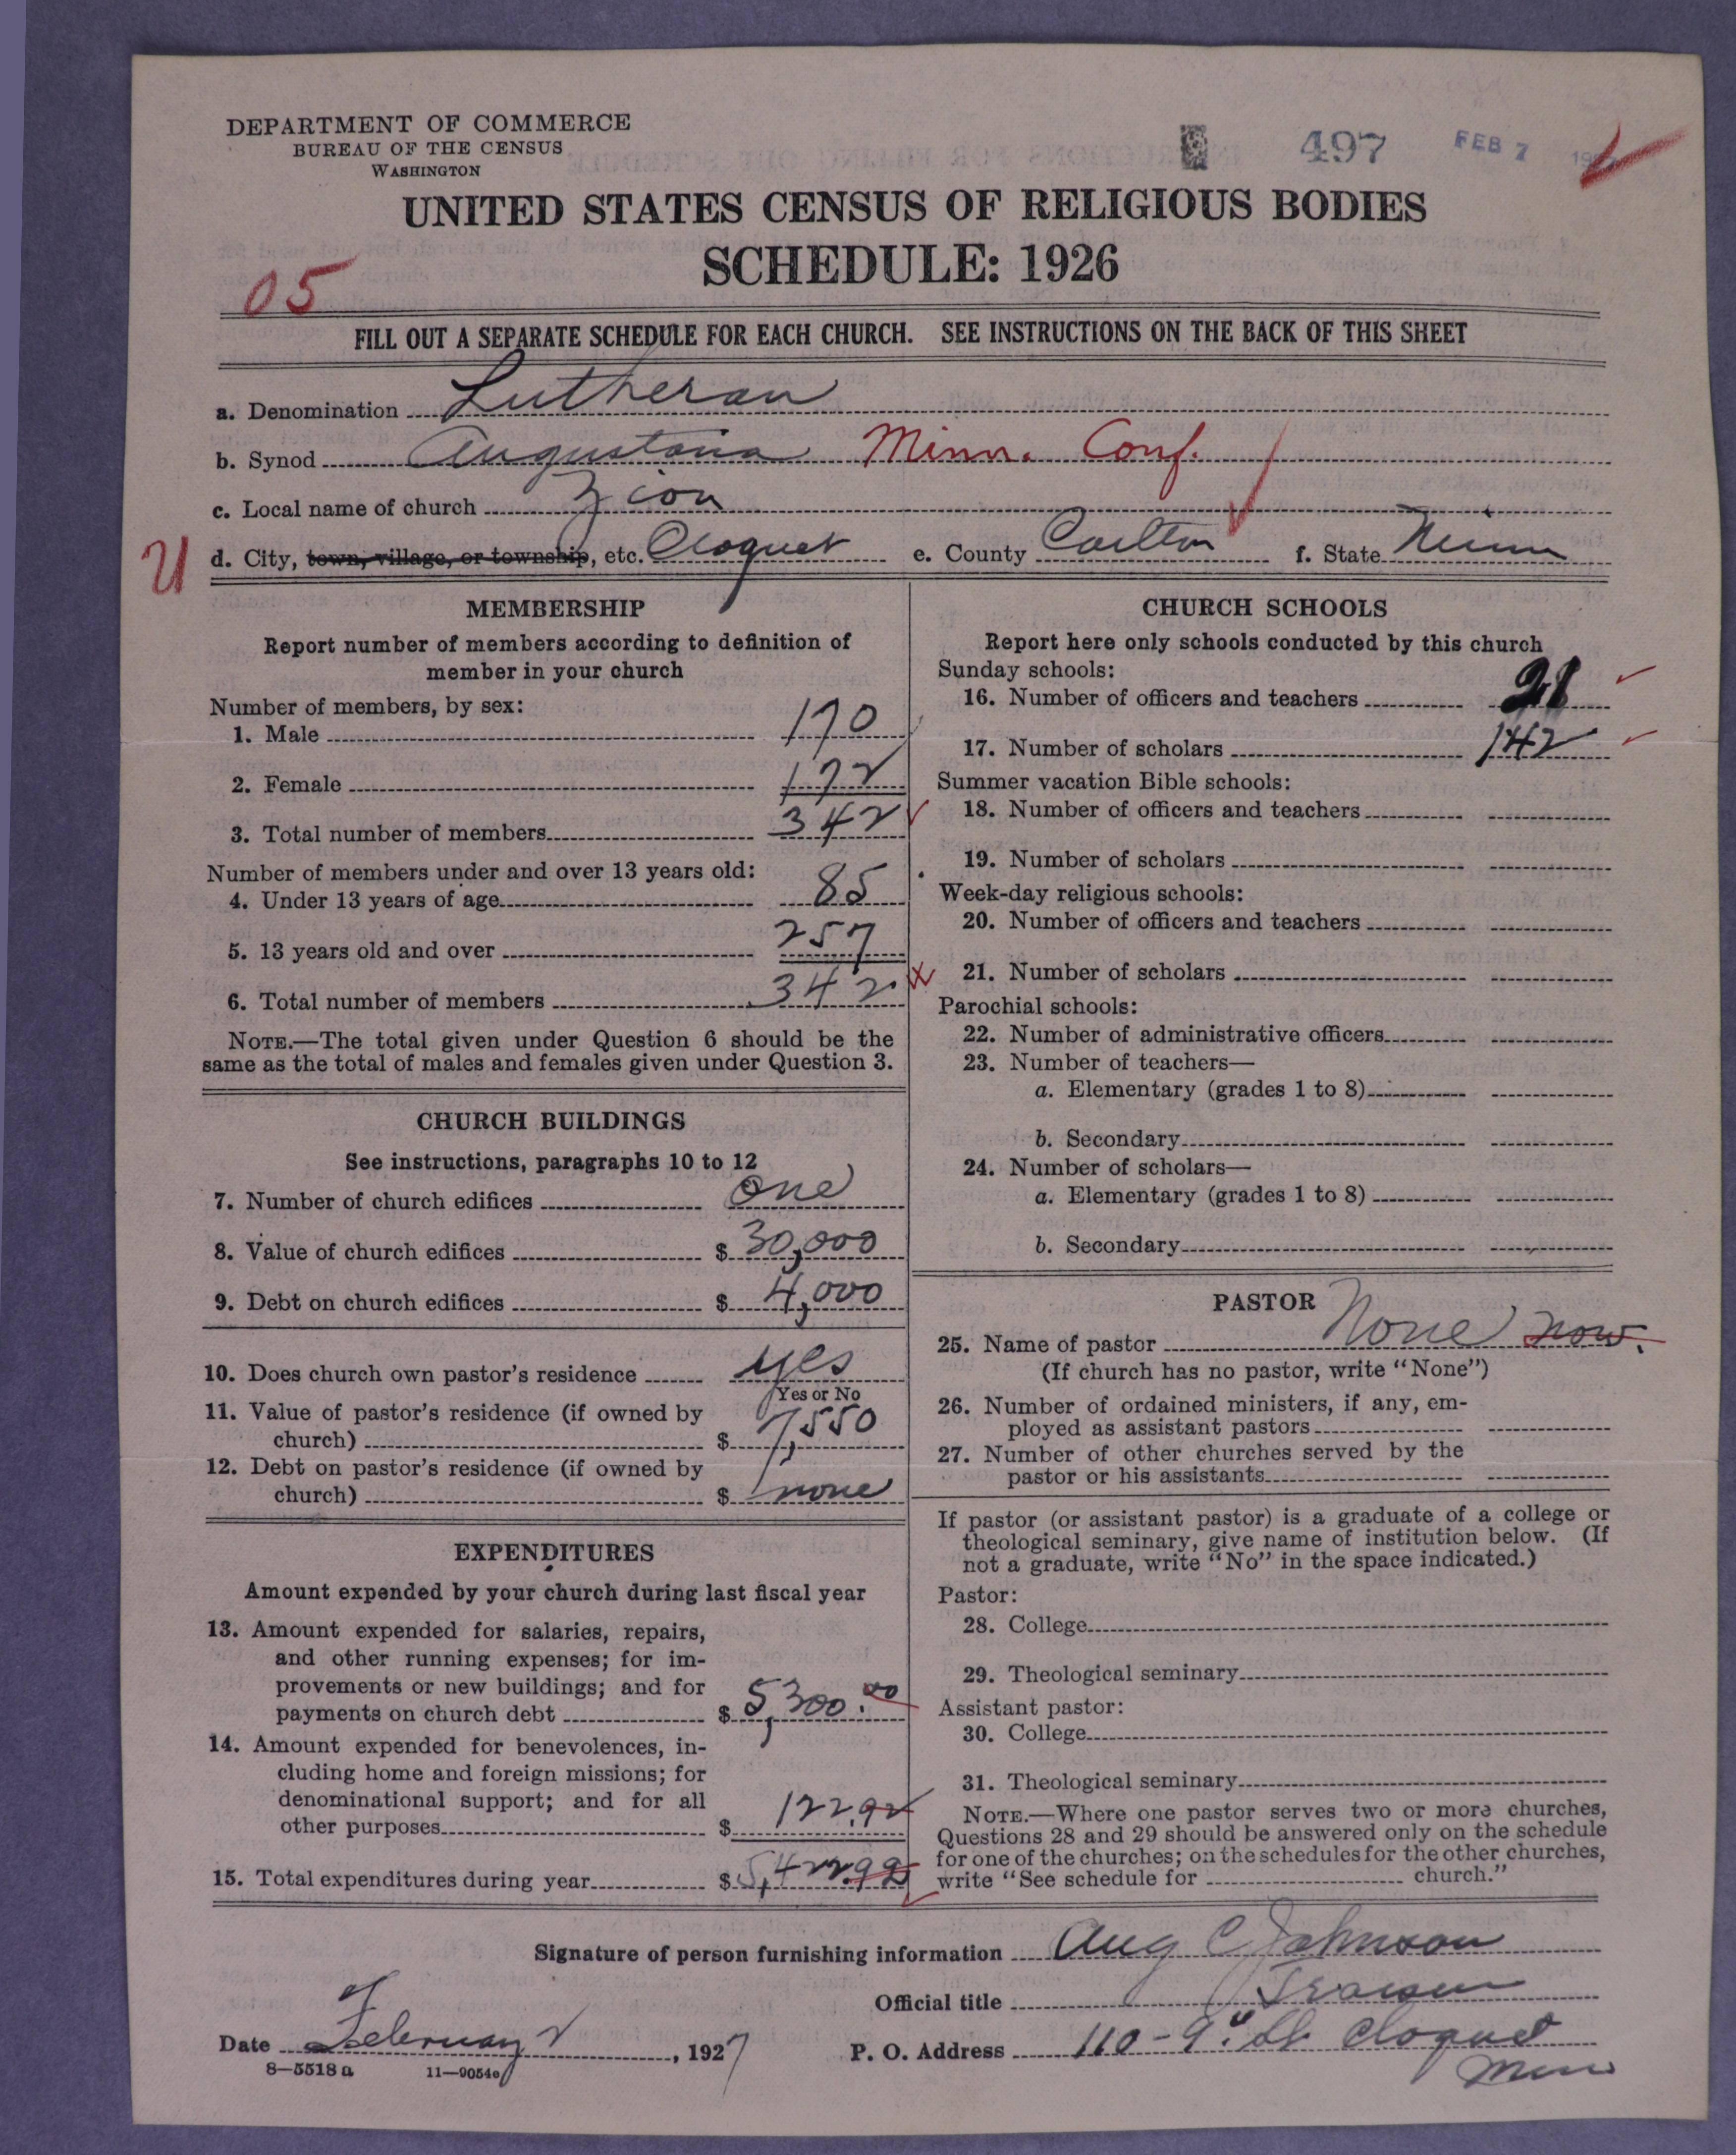 DEPARTMENT OF COMMERCE
BUREAU OF THE CENSUS
WASHINGTON
497 FEB 7
UNITED STATES CENSUS OF RELIGIOUS BODIES
SCHEDULE: 1926
05
FILL OUT A SEPARATE SCHEDULE FOR EACH CHURCH. SEE INSTRUCTIONS ON THE BACK OF THIS SHEET
a. Denomination Lutheran
b. Synod Augustana Minn. Conf.
c. Local name of church Zion
U d. City, town, village, or township, etc. Cloquet e. County Carlton f. State Minn
MEMBERSHIP
Report number of members according to definition of
member in your church
Number of members, by sex:
1. Male 170
2. Female 172
3. Total number of members 342
Number of members under and over 13 years old:
4. Under 13 years of age 85
5. 13 years old and over 257
6. Total number of members 342
NOTE.—The total given under Question 6 should be the
same as the total of males and females given under Question 3.
CHURCH BUILDINGS
See instructions, paragraphs 10 to 12
7. Number of church edifices One
8. Value of church edifices $ 30,000
9. Debt on church edifices $ 4,000
10. Does church own pastor's residence yes
Yes or No
11. Value of pastor's residence (if owned by
church) $ 7,550
12. Debt on pastor's residence (if owned by
church) $ none
EXPENDITURES
Amount expended by your church during last fiscal year
13. Amount expended for salaries, repairs,
and other running expenses; for im-
provements or new buildings; and for
payments on church debt $ 5,300.00
14. Amount expended for benevolences, in-
cluding home and foreign missions; for
denominational support; and for all
other purposes $ 122.92
15. Total expenditures during year $ 5,422.92
CHURCH SCHOOLS
Report here only schools conducted by this church
Sunday schools:
16. Number of officers and teachers 21
17. Number of scholars 142
Summer vacation Bible schools:
18. Number of officers and teachers
19. Number of scholars
Week-day religious schools:
20. Number of officers and teachers
21. Number of scholars
Parochial schools:
22. Number of administrative officers
23. Number of teachers—
a. Elementary (grades 1 to 8)
b. Secondary
24. Number of scholars—
a. Elementary (grades 1 to 8)
b. Secondary
PASTOR
25. Name of pastor None now.
(If church has no pastor, write "None")
26. Number of ordained ministers, if any, em-
ployed as assistant pastors
27. Number of other churches served by the
pastor or his assistants
If pastor (or assistant pastor) is a graduate of a college or
theological seminary, give name of institution below. (If
not a graduate, write "No" in the space indicated.)
Pastor:
28. College
29. Theological seminary
Assistant pastor:
30. College
31. Theological seminary
NOTE.—Where one pastor serves two or more churches,
Questions 28 and 29 should be answered only on the schedule
for one of the churches; on the schedules for the other churches,
write "See schedule for church."
Signature of person furnishing information Aug C Johnson
Official title
Date February 2, 1927 P. O. Address 110-9" St Cloquet
Minn
8—5518 a 11—9054